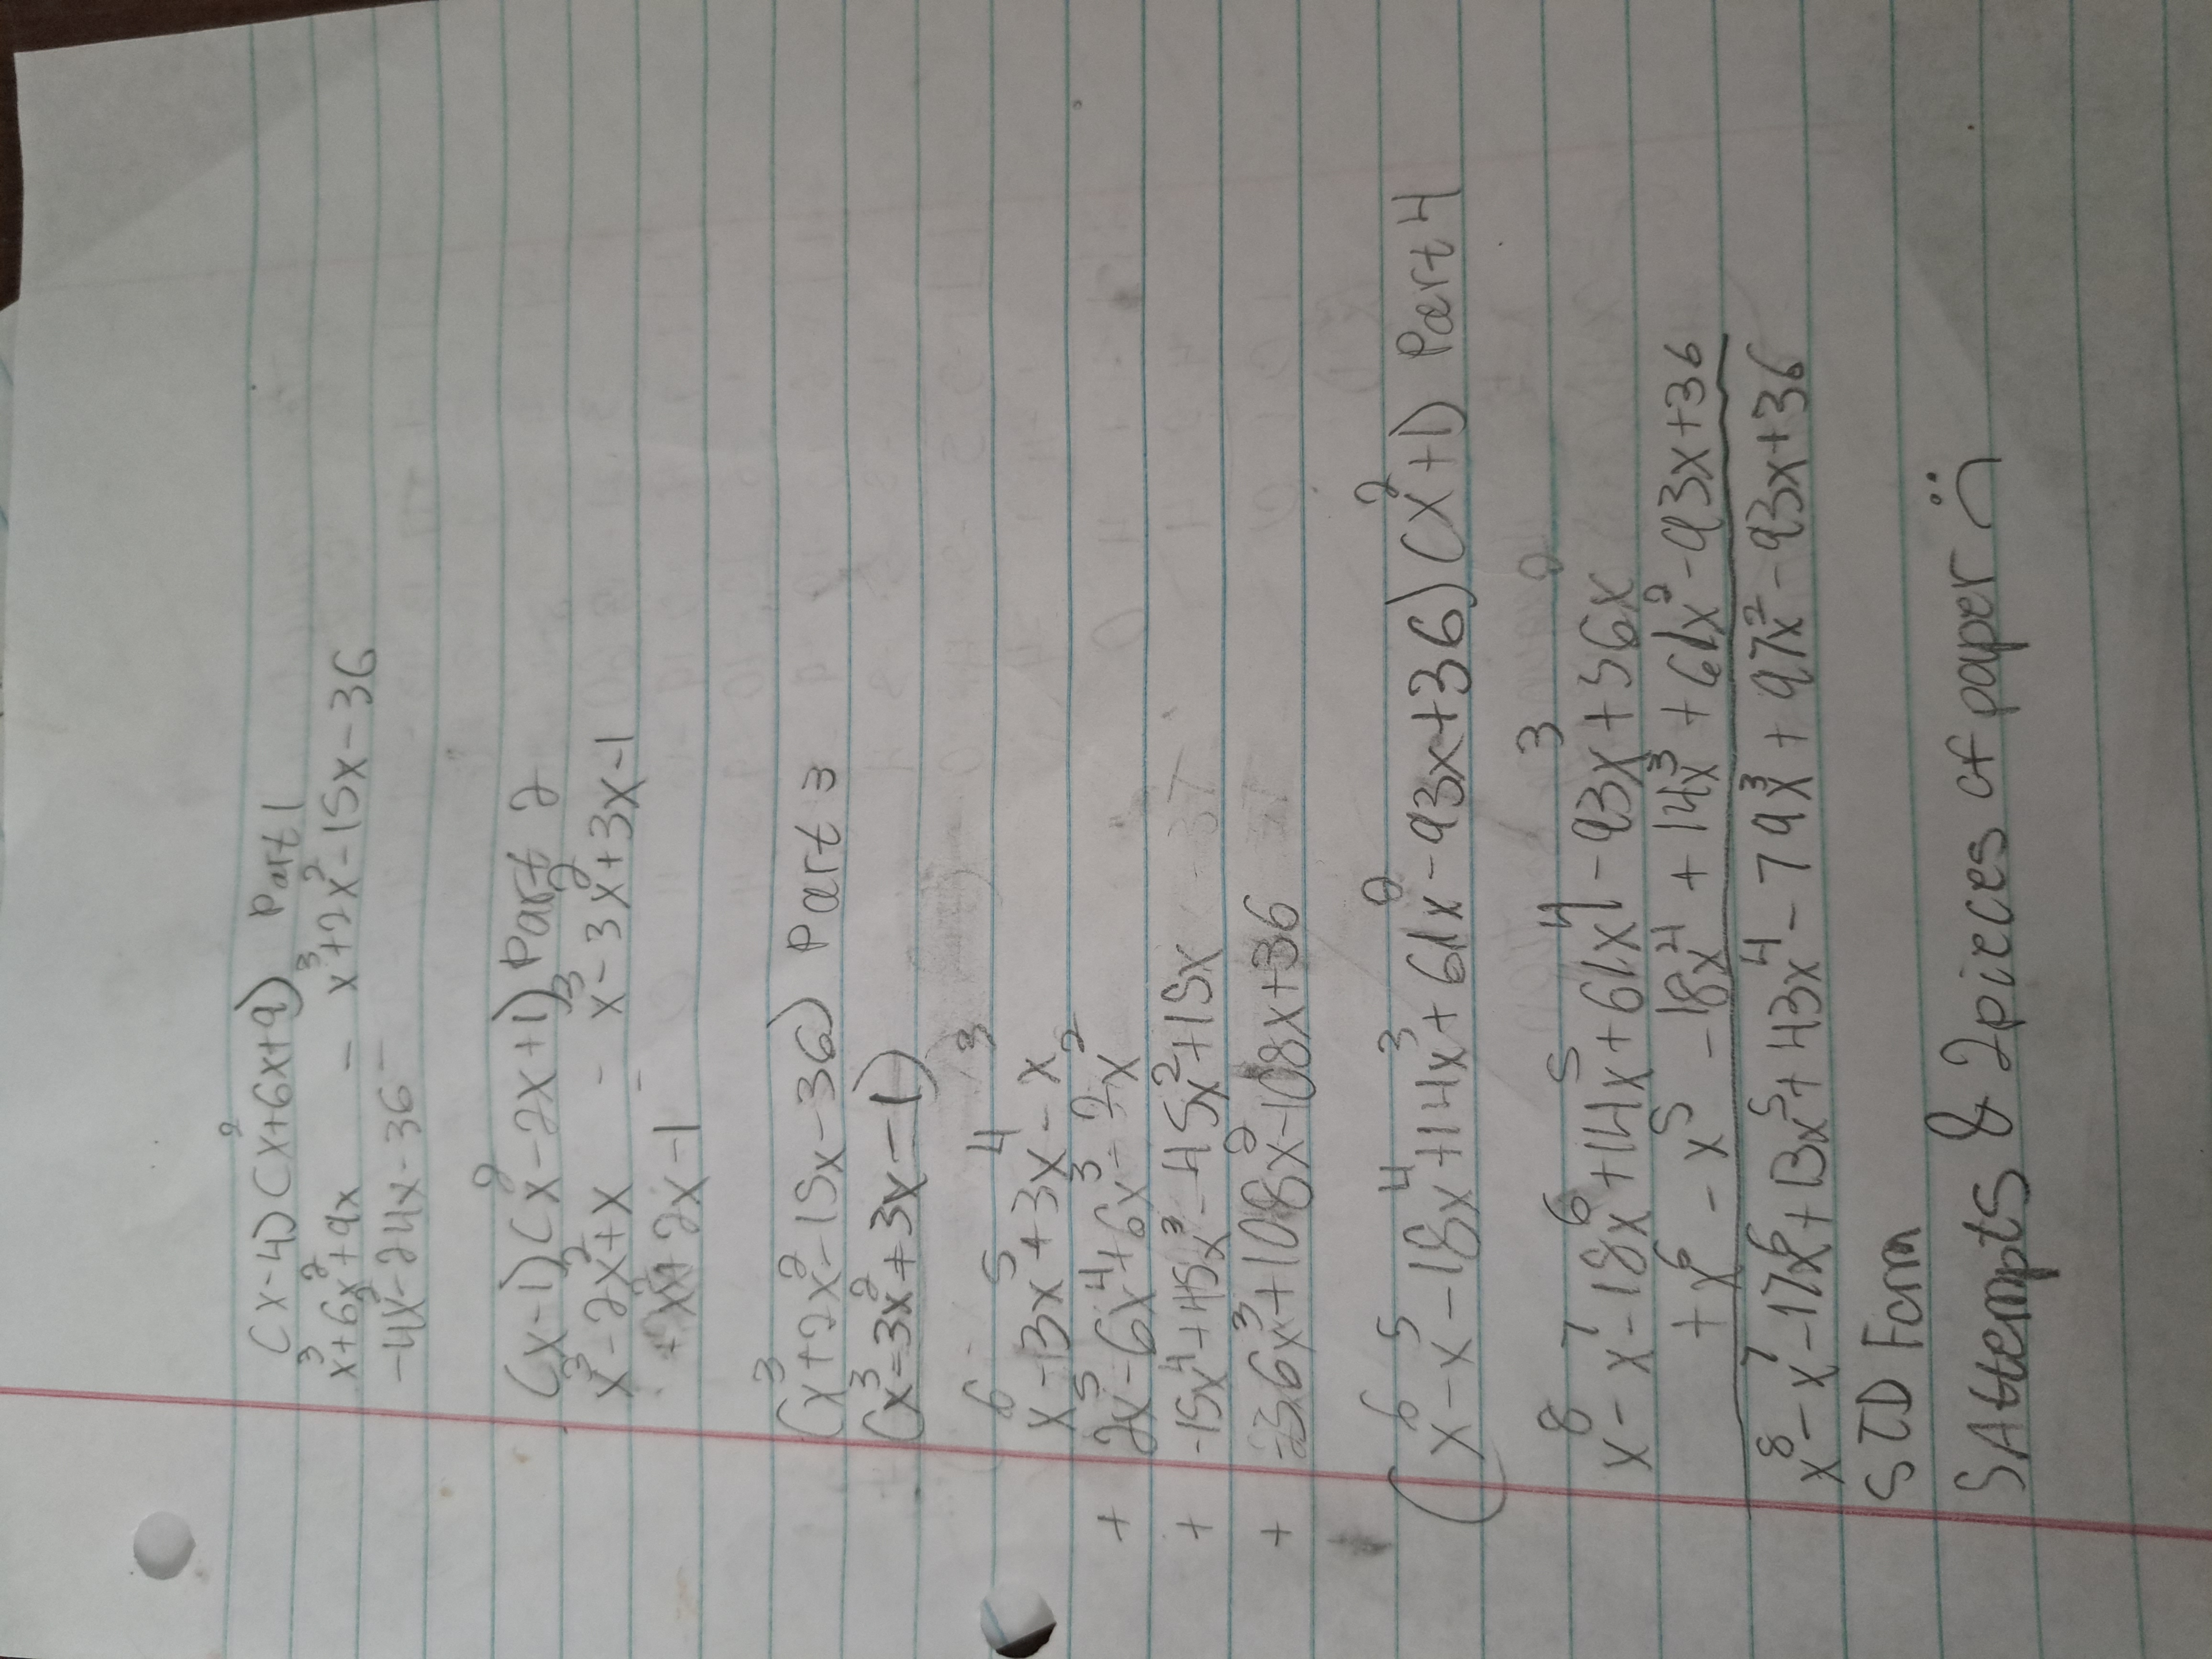 (x-4)(x²+6x+9) Part 1
x³+6x²+9x = x³+2x²-15x-36
-4x²-24x-36
(x-1)(x²-2x+1) Part 2
x³-2x²+x = x³-3x²+3x-1
-x²+2x-1
(x³+2x²-15x-36) Part 3
(x³-3x²+3x-1)
x⁶-3x⁵+3x⁴-x³
+ 2x⁵-6x⁴+6x³-2x²
+ -15x⁴+45x³-45x²+15x
+ -36x³+108x²-108x+36
(x⁶-x⁵-18x⁴+14x³+61x²-93x+36)(x²+1) Part 4
x⁸-x⁷-18x⁶+14x⁵+61x⁴-93x³+36x²
+x⁶-x⁵-18x⁴+14x³+61x²-93x+36
x⁸-x⁷-17x⁶+13x⁵+43x⁴-79x³+97x²-93x+36
STD Form
5 Attempts & 2 pieces of paper :(